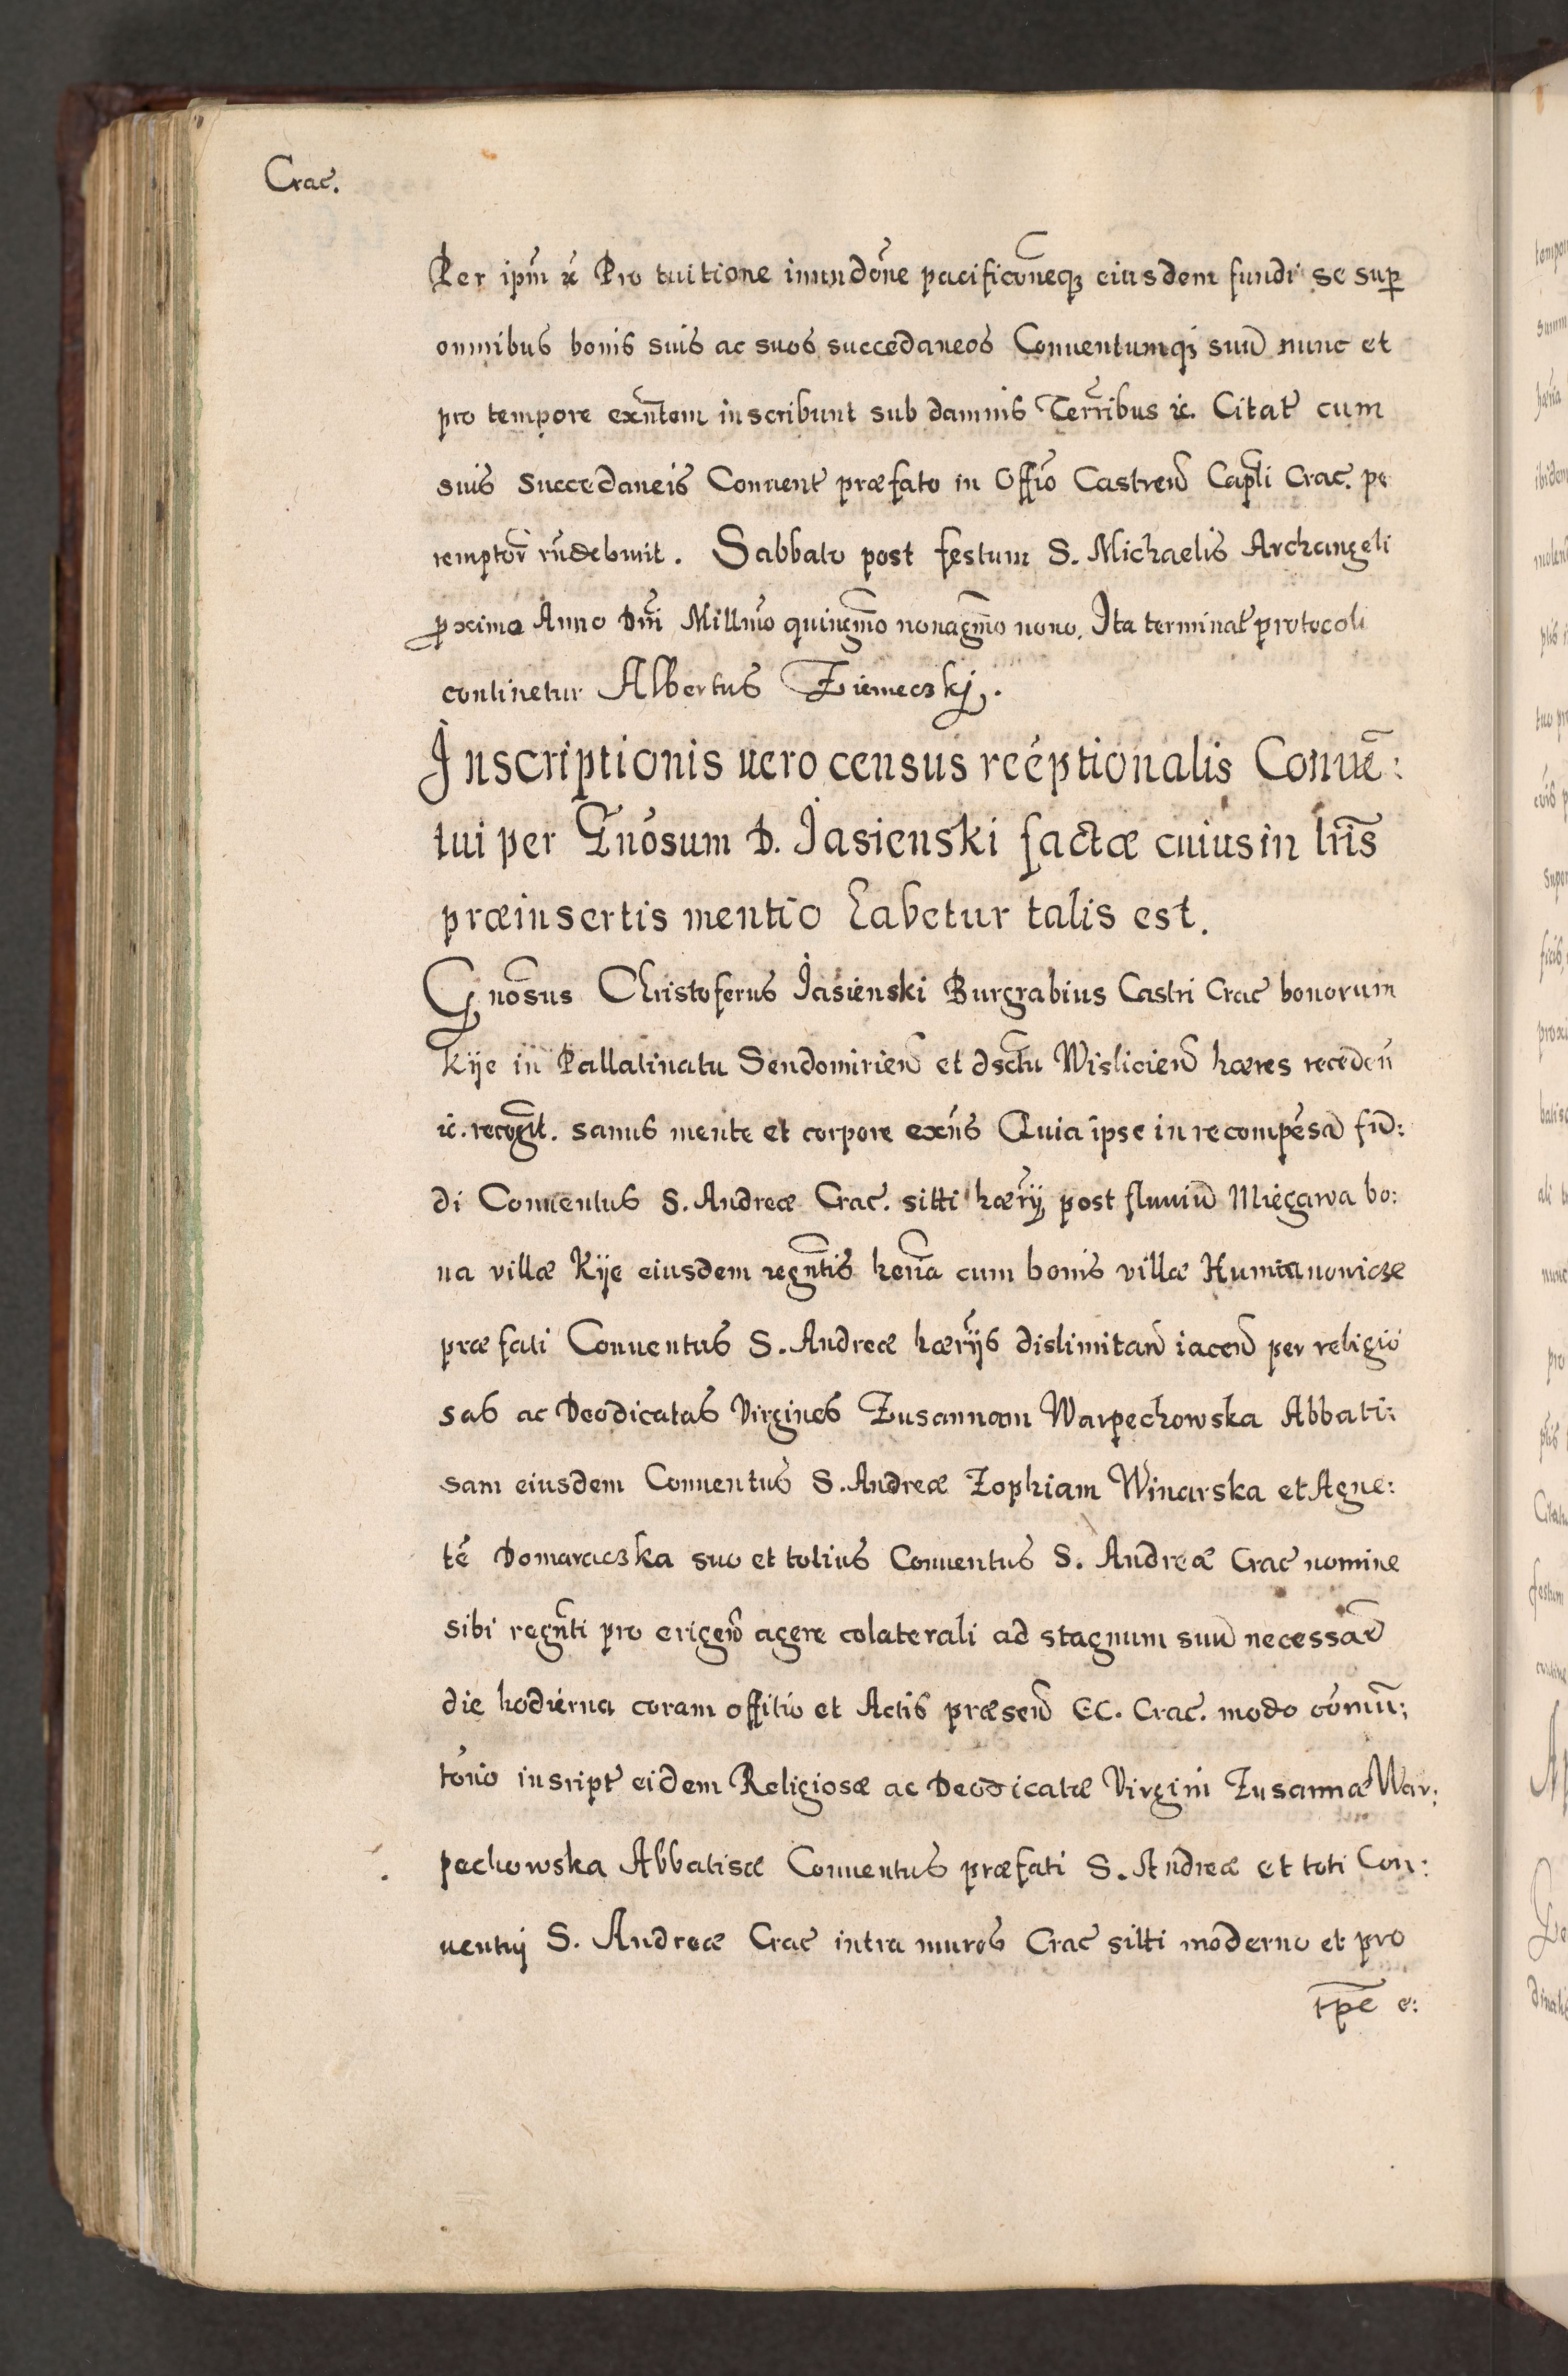 Crac̃.
Per ipm̃ ꝛc̃ Pro tuitione inundõne pacificõneqꝫ eiusdem fundi se suꝑ
omnibus bonis suis ac suos succedaneos Conuentumqꝫ suũ nunc et
pro tempore exñtem inscribunt sub damnis Terr̃ibus ꝛc. Citat̃ cum
suis Succedaneis Conuent̃ præfato in Offĩo Castreñ Capt̃li Crac̃. pe
remptor̃ rñdebunt. Sabbato post festum S. Michaelis Archangeli
ꝓxima Anno Dñi Millm̃o quingm̃o nonagm̃o nono. Ita terminat̃ protocoli
continetur Albertus Ziemeczkj.
Inscriptionis uero census reẽptionalis Conuẽ:
tui per Gñosum D. Jasienski factæ cuius in lr̃is
præinsertis mentio habetur talis est.
Gñosus Christoferus Jasienski Burgrabius Castri Crac̃ bonorum
Kije in Pallatinatu Sendomirieñ et dsc̃tu Wislicieñ hæres recedeñ
ꝛc. recogñt. sanus mente et corpore exñs Quia ipse in recompẽsã fũ:
di Conuentus S. Andreæ Crac̃. sitti hær̃ij post fluuiũ Miegawa bo:
na villæ Kije eiusdem regñtis her̃ia cum bonis villæ Humianowicze
præfati Conuentus S. Andreæ hær̃ijs dislimitañ iaceñ per religio
sas ac Deodicatas Virgines Zusannam Warpechowska Abbati:
sam eiusdem Conuentus S. Andreæ Zophiam Winarska et Agne:
tẽ Domaraczka suo et totius Conuentus S. Andreæ Crac̃ nomine
sibi regñti pro erigeñ agere colaterali ad stagnum suũ necessar̃
die hodierna coram offitio et Actis præseñ CC. Crac̃. modo cõmu̅:
tõrio inscript̃ eidem Religiosæ ac Deodicatæ Virgini Zusannæ War:
pechowska Abbatisæ Conuentus præfati S. Andreæ et toti Con:
uentuj S. Andreæ Crac̃ intra muros Crac̃ sitti moderno et pro
tp̃e e: